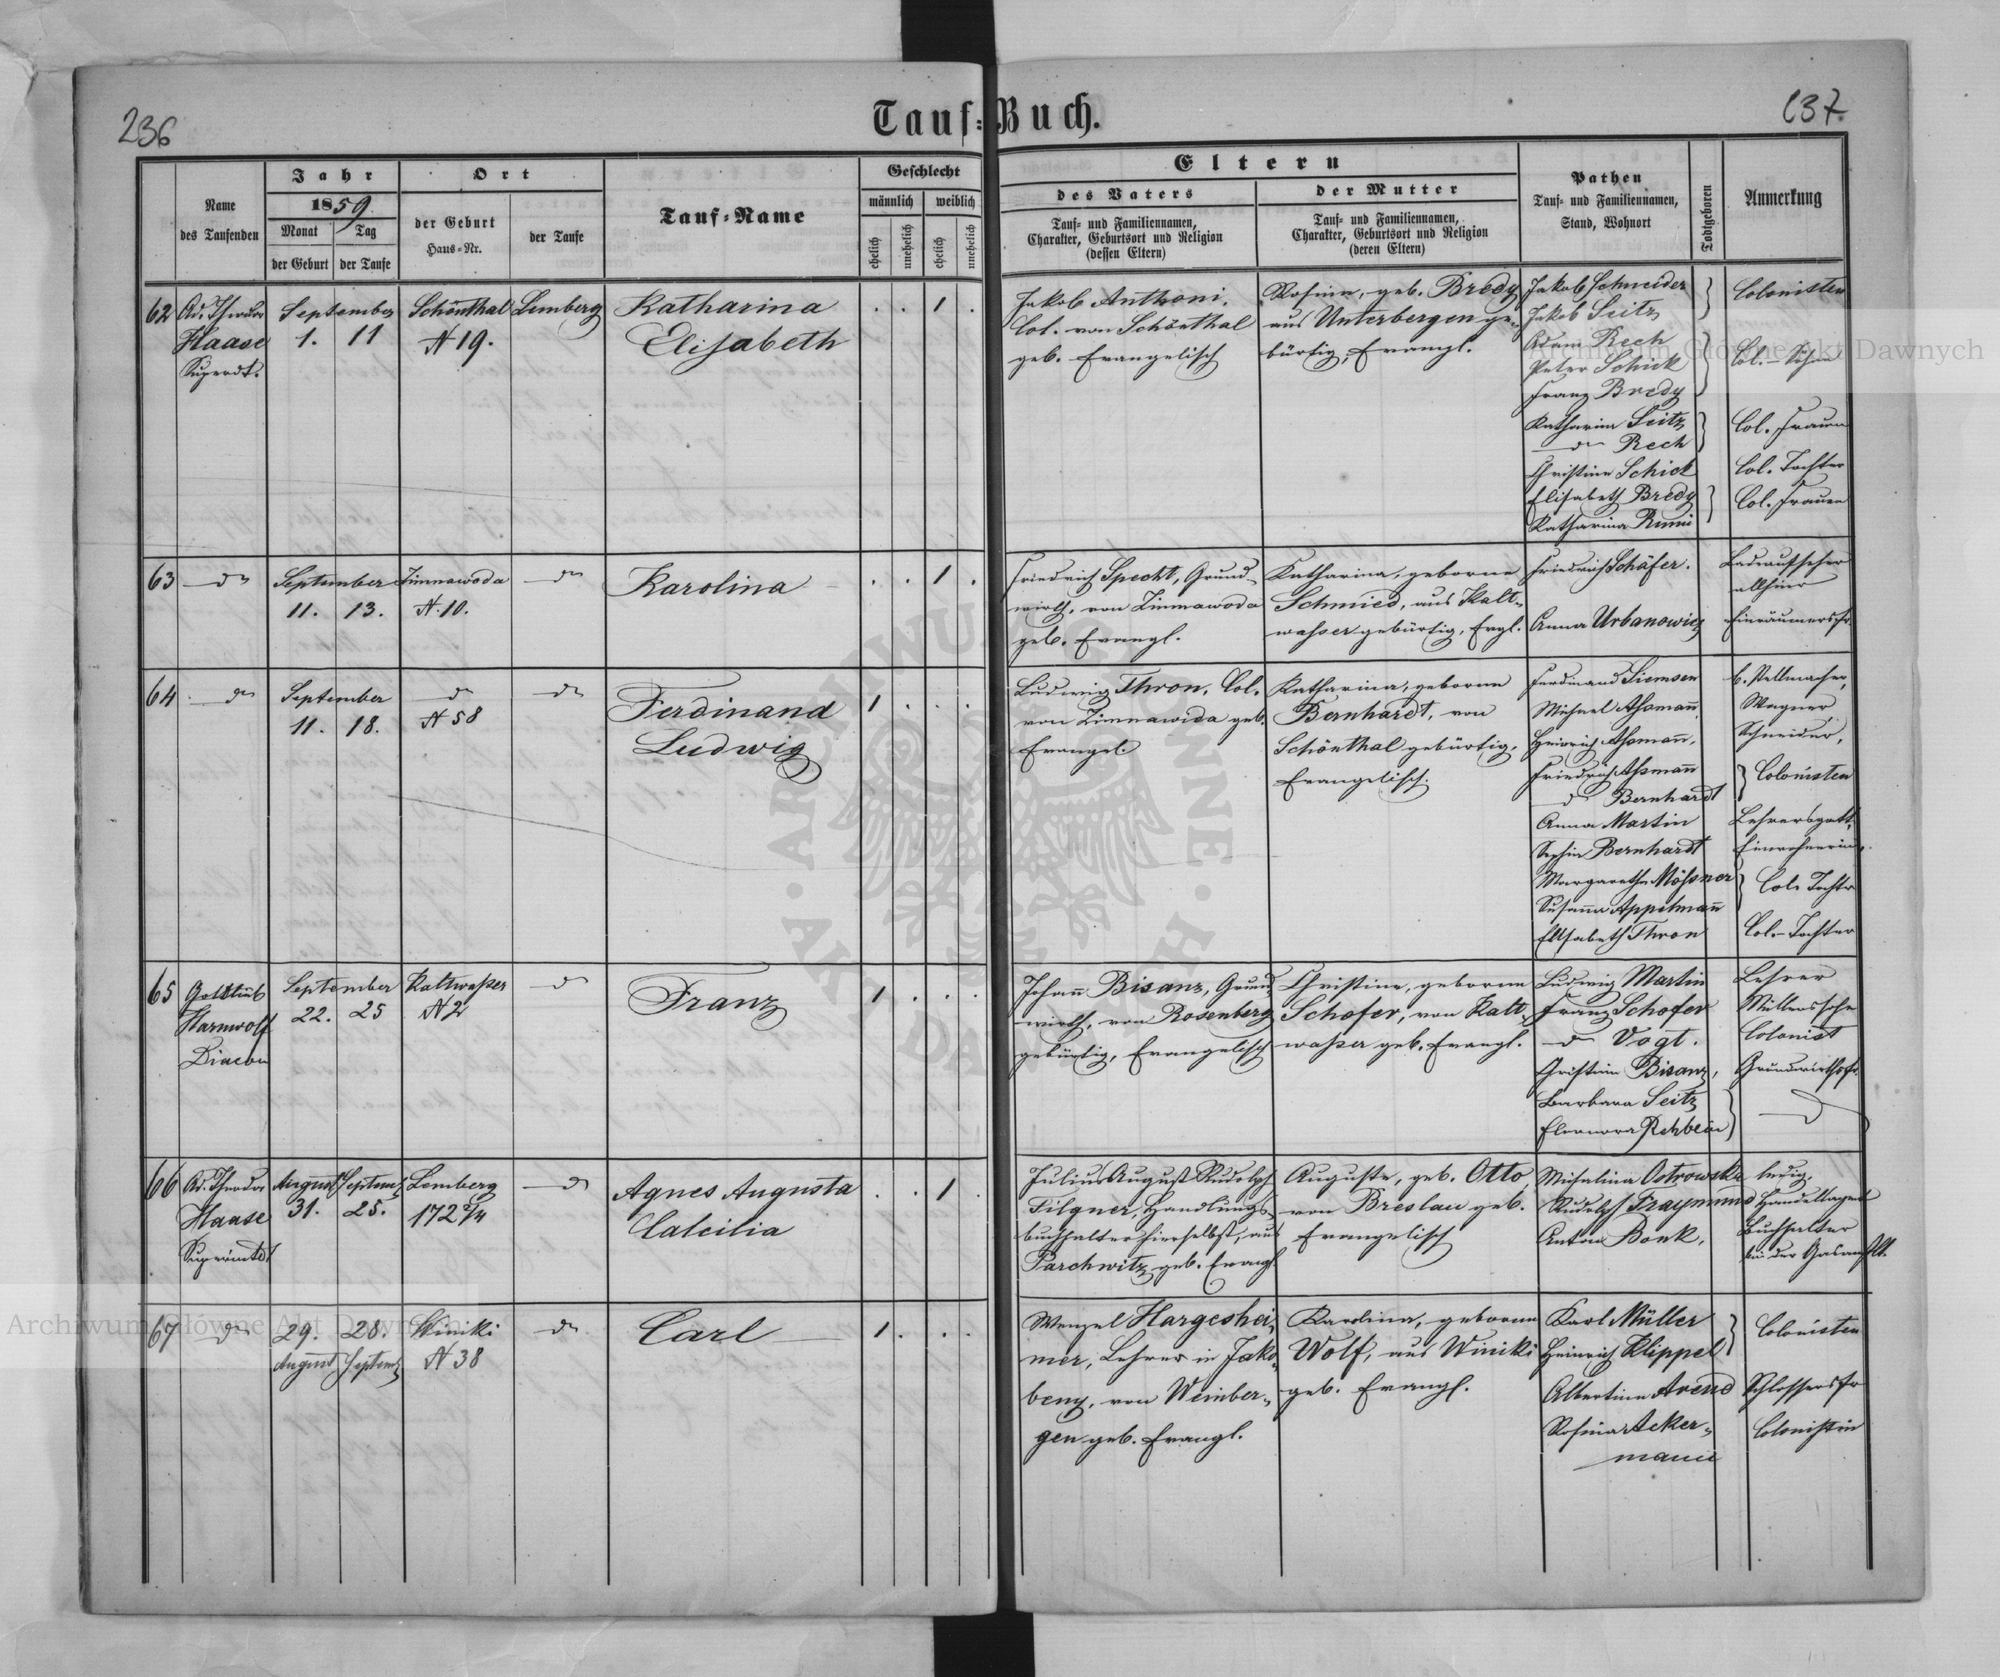 236
Tauf-Buch.
137.
Name
des Taufenden
Jahr
1859
Monat
Tag
der Geburt
der Taufe
Ort
der Geburt
Haus-Nr.
der Taufe
Tauf-Name
Geschlecht
männlich
weiblich
ehelich
unehelich
ehelich
unehelich
Eltern
des Vaters
Tauf- und Familiennamen,
Charakter, Geburtsort und Religion
(dessen Eltern)
der Mutter
Tauf- und Familiennamen,
Charakter, Geburtsort und Religion
(deren Eltern)
Pathen
Tauf- und Familiennamen,
Stand, Wohnort
Todtgeboren
Anmerkung
62
Ad. Theodor
Haase
Superdt.
September
1. 11
Schönthal
N 19.
Lemberg
Katharina
Elisabeth
. . 1 .
Jakob Anthoni.
Col. von Schönthal
geb. Evangelisch
Rosina, geb. Bredy
aus Unterbergen ge-
bürtig, Evangl.
Jakob Schneider
Jakob Seitz
Adam Rech
Peter Schick
Franz Bredy
Katharina Seitz
do Rech
Christine Schick
Elisabeth Bredy
Katharina Rumi
Colonisten
Col. Söhne
Col. Frauen
Col. Tochter
Col. Frauen
63
do
September
11. 13.
Zimnawoda
N. 10.
do
Karolina
. . 1 .
Friedrich Specht, Grund-
wirth, von Zimnawoda
geb. Evangl.
Katharina, geborne
Schmied, aus Kalt-
waßer gebürtig, Evgl.
Friedrich Schäfer.
Anna Urbanowicz
allhier
Einräumersfr.
64
do
September
11. 18.
do
N 58
do
Ferdinand
Ludwig
1 . . .
Ludwig Thron, Col.
von Zimnawida geb.
Evangel.
Katharina, geborne
Bernhardt, von
Schönthal gebürtig,
Evangelisch.
Ferdinand Siemsen
Michael Aßmann
Heinrich Aßmann,
Friedrich Aßmann
do Bernhardt
Anna Martin
Sophia Bernhardt
Margaretha Mößner
Susanna Appelmann
Elisabeth Thron
b. Stellmacher,
Wagner,
Schneider,
Colonisten
Lehrersgatt.
Einwohnerin,
Col. Tochter
Col.-Tochter
65
Gottlieb
Harmwolf
Diacon
September
22. 25
Kaltwaßer
N 2
do
Franz
1 . . .
Johann Bisanz, Grund-
wirth, von Rosenberg
gebürtig, Evangelisch
Christine, geborne
Schofer, von Kalt-
waßer geb. Evangl.
Ludwig Martin
Franz Schofer
do Vogt.
Christina Bisanz,
Barbara Seitz
Eleonora Rehbein
Lehrer
Müllerssohn
Colonist
Grundwirthsfr.
do
66
Ad. Theodor
Haase
August Septemb.
31. 25.
Lemberg
172 2/4
do
Agnes Augusta
Calcilia
. . 1 .
Julius August Rudolph
Filgner, Handlungs-
buchhalter hierselbst, aus
Parchwitz geb. Evangl.
Auguste, geb. Otto,
von Breslau geb.
Evangelisch
Michalina Ostrowska
Rudolf Fraymund
Anton Bonk,
ledig,
Handelsagent
Buchhalter
bei der Gasanstlt.
67
do
29. 28.
August Septemb.
Winiki
N 38
do
Carl
1 . . .
Wenzel Hargeshei-
mer, Lehrer in Jako-
beny, von Weinber-
gen geb. Evangl.
Karolina, geborne
Wolf, aus Winiki
geb. Evangl.
Karl Müller
Heinrich Klippel
Albertine Arend
Rosina Acker-
mann
Colonisten
Schlossersfr.
Colonistin
Archiwum Główne Akt Dawnych
Archiwum Główne Akt Dawnych